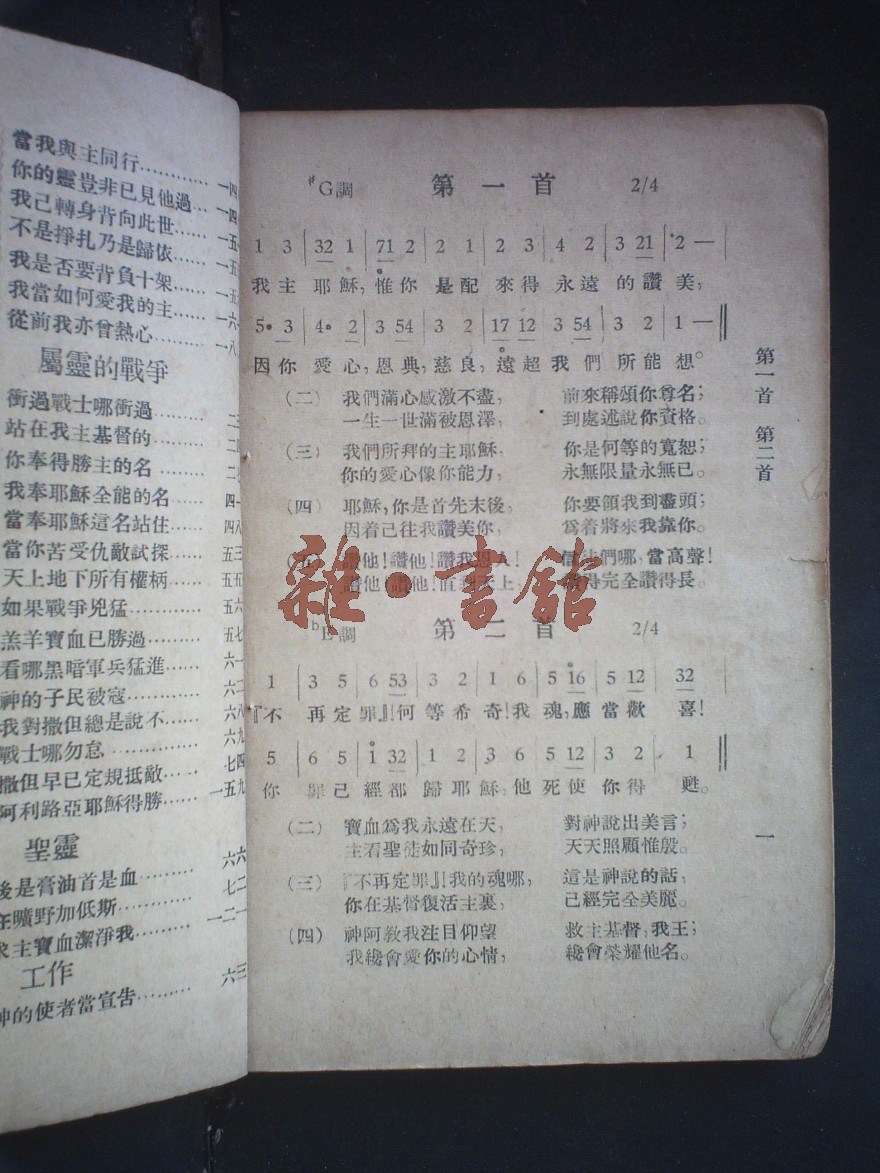 當我與主同行………… 一四
你的靈豈非已見他過… 一四
我己轉身背向此世…… 一五
不是掙扎乃是歸依…… 一五
我是否要背負十架…… 一五
我當如何愛我的主…… 一六
從前我亦曾熱心……… 一八
屬靈的戰爭
衝過戰士哪衝過………
站在我主基督的………
你奉得勝主的名………
我奉耶穌全能的名…… 四一
當奉耶穌這名站住…… 四八
當你苦受仇敵試探…… 五三
天上地下所有權柄…… 五五
如果戰爭兇猛………… 五六
羔羊寶血已勝過……… 五七
看哪黑暗軍兵猛進…… 六一
神的子民被寇………… 六二
我對撒但總是說不…… 六八
戰士哪勿怠…………… 六九
撒但早已定規抵敵…… 七四
阿利路亞耶穌得勝…… 一五九
聖靈
後是膏油首是血……… 六六
在曠野加低斯………… 七二
求主寶血潔淨我……… 一二一
工作
神的使者當宣告……… 六三
♯G調 第一首 2/4
1 3 | 32 1 | 71 2 | 2 1 | 2 3 | 4 2 | 3 21 | 2 — |
我主耶穌,惟你是配來得永遠的讚美,
5• 3 | 4• 2 | 3 54 | 3 2 | 17 12 | 3 54 | 3 2 | 1 — ‖
因你愛心,恩典,慈良,遠超我們所能想。
(二) 我們滿心感激不盡, 前來稱頌你尊名;
一生一世滿被恩澤, 到處述說你資格。
(三) 我們所拜的主耶穌, 你是何等的寬恕;
你的愛心像你能力, 永無限量永無已。
(四) 耶穌,你是首先末後, 你要領我到盡頭;
因着己往我讚美你, 為着將來我靠你。
(五) 讚他!讚他!讚我恩人! 信徒們哪,當高聲!
讚他!讚他!直到天上, 讚得完全讚得長。
雜•書館
♭E調 第二首 2/4
1 | 3 5 | 6 53 | 3 2 | 1 6 | 5 16 | 5 12 | 32 |
『不再定罪』!何等希奇!我魂,應當歡喜!
5 | 6 5 | 1 32 | 1 2 | 3 6 | 5 12 | 3 2 | 1 ‖
你罪己經都歸耶穌,他死使你得甦。
(二) 寶血爲我永遠在天, 對神說出美言;
主看聖徒如同奇珍, 天天照顧惟殷。
(三) 『不再定罪』!我的魂哪, 這是神說的話,
你在基督復活主裏, 己經完全美麗。
(四) 神阿教我注目仰望 救主基督,我王;
我纔會愛你的心情, 纔會榮耀他名。
第一首 第二首
一